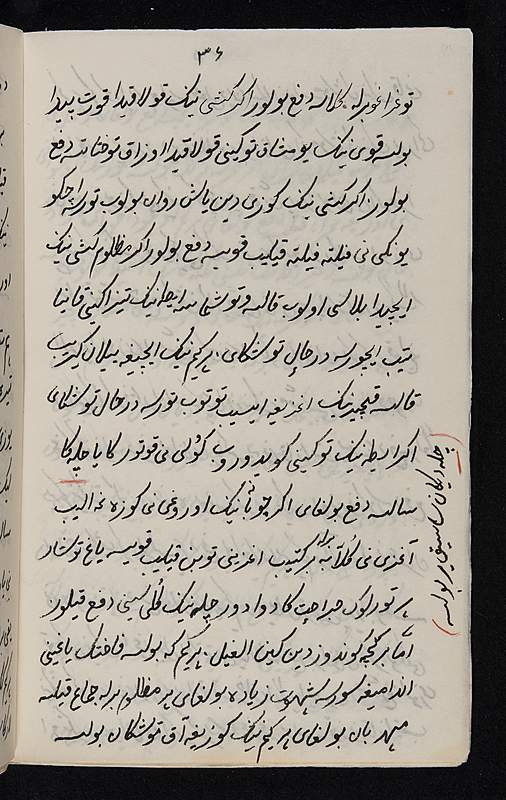 ۳۶
توغراغورله کلاسه دفع بولور اکر کشی نینک قولاقیدا قورت پیدا
بولسه قوی نینک یومشاق توکینی قولاقیدا اوزاق توختاتسه دفع
بولور اکر کشی نینک کوزی دین یاش روان بولوب تورسه اچکو
یونکی نی فیلته فیلته قیلیب قویسه دفع بولور اکر مظلوم کشی نینک
ایچیدا بلاسی اولوب قالسه و توشماسه ایطنینک تیزاکینی قاینا
تیب ایچورسه درحال توشکای هر کیم نینک ایچیغه ییلان کیریب
قالسه قیچیرینک اغزیغه ایسیب توتوب تورسه درحال توشکای
اکر ایطنینک توکینی کویدوروب کولی نی قوتورکا یا چله کا
سالسه دفع بولغای اکر چوپا نینک اوروغی نی کوزه غه الیب
آغزی نی کلآنه برلن برکیتیب اغزینی توبن قیلیب قویسه یاغ توشار
هر تورلوک جراحت کا دوا دور چله نینک کلی سینی دفع قیلور
اما بر کیچه کوندوزدین کین الغیل هر کیم که بولسه فاختک یاغینی
اندامیغه سورسه شهوت زیاده بولغای هر مظلوم برله جماع قیلسه
مهربان بولغای هر کیم نینک کوزیغه آق توشکان بولسه
چله دیکان ساسیق یر بولسه